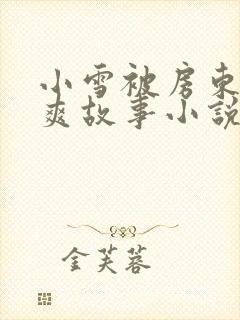 小雪被房东
爽故事小说
金芙蓉